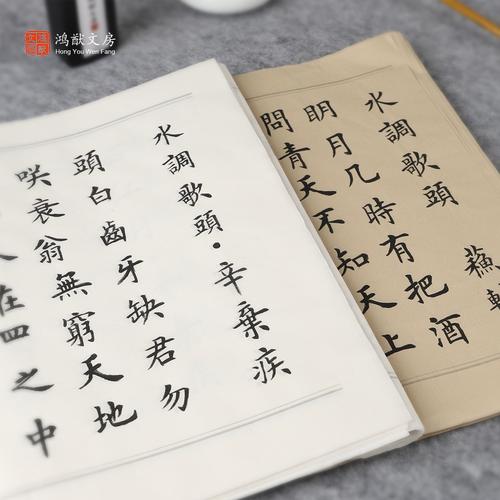 鸿猷文房
Hong You Wen Fang
水調歌頭·辛棄疾
頭白齒牙缺君勿
咲衰翁無窮天地
在四之中
水調歌頭 蘇軾
明月几時有把酒
問青天不知天上